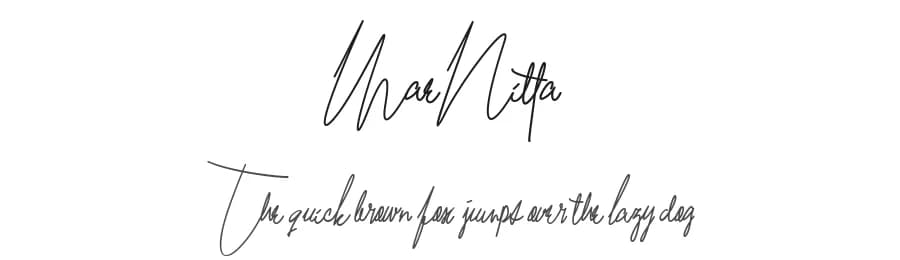 MarNitta
The quick brown fox jumps over the lazy dog